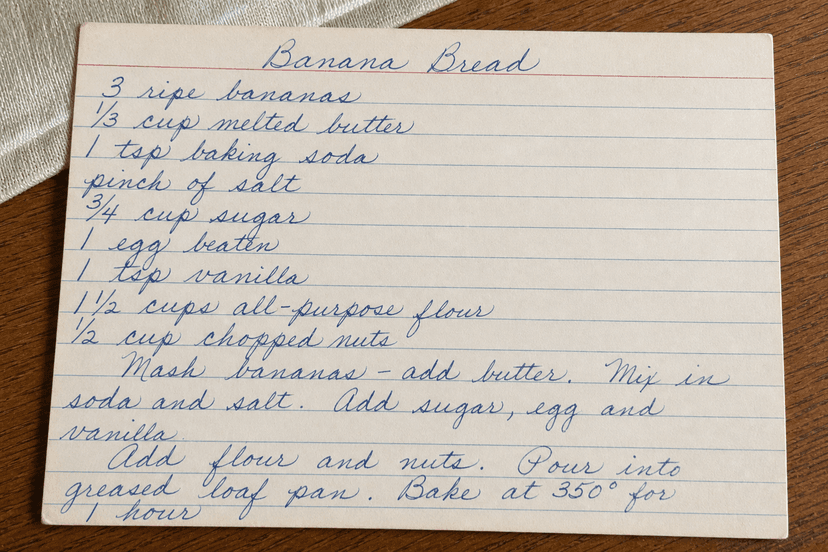 Banana Bread
3 ripe bananas
1/3 cup melted butter
1 tsp baking soda
pinch of salt
3/4 cup sugar
1 egg beaten
1 tsp vanilla
1 1/2 cups all-purpose flour
1/2 cup chopped nuts
Mash bananas - add butter. Mix in
soda and salt. Add sugar, egg and
vanilla.
Add flour and nuts. Pour into
greased loaf pan. Bake at 350° for
1 hour